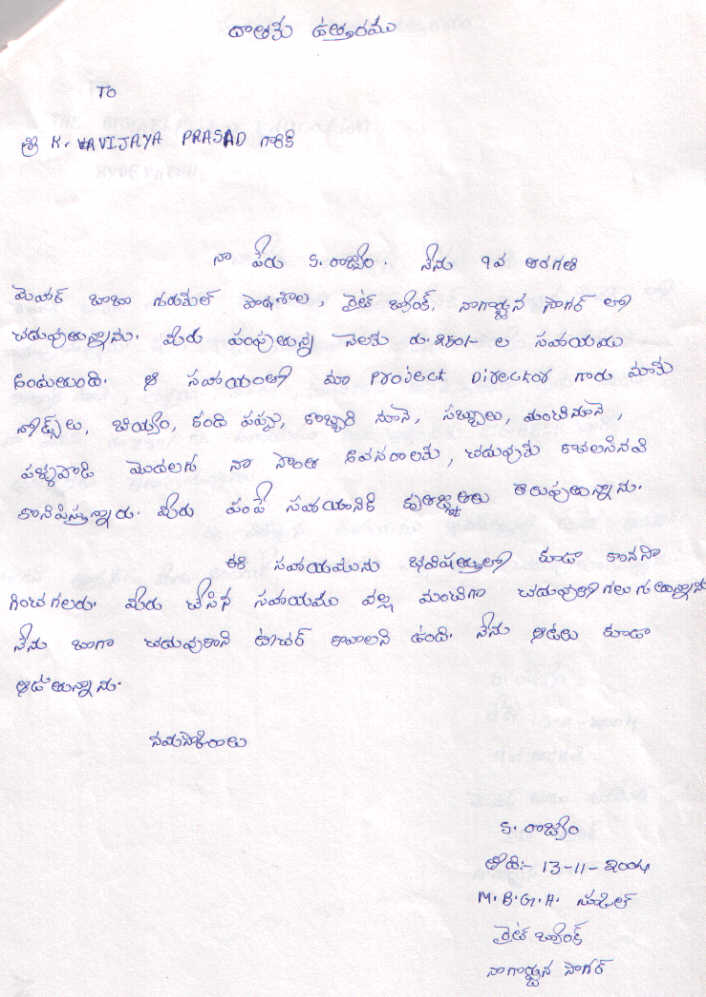 దాతకు ఉత్తరము
TO
శ్రీ K. VAVIJAYA PRASAD గారికి
నా పేరు S. రాజ్యం. నేను 9వ తరగతి
మెహర్ బాబా గురుకుల్ పాఠశాల, రైట్ బ్యాంక్, నాగార్జున సాగర్ లో
చదువుతున్నాను. మీరు పంపుతున్న నెలకు రు.250/- ల సహాయము
అందుతుంది. ఆ సహాయంతో మా Project Director గారు మాకు
నోట్స్‌లు, బియ్యం, కంది పప్పు, కొబ్బరి నూనె, సబ్బులు, మంచినూనె,
పళ్ళపొడి మొదలగు నా సొంత అవసరాలకు, చదువుకు కావలసినవి
కొనిపిస్తున్నారు. మీరు పంపే సహాయానికి కృతజ్ఞతలు తెలుపుతున్నాను.
ఈ సహాయమును భవిష్యత్తులో కూడా కొనసా
గించగలరు. మీరు చేసిన సహాయము వల్ల మంచిగా చదువుకో గలుగుతున్నాను
నేను బాగా చదువుకొని టీచర్ కావాలని ఉంది. నేను ఆటలు కూడా
ఆడుతున్నాను.
నమస్కారములు
S. రాజ్యం
తేది:- 13-11-2004
M.B.G.H. స్కూల్
రైట్ బ్యాంక్
నాగార్జున సాగర్